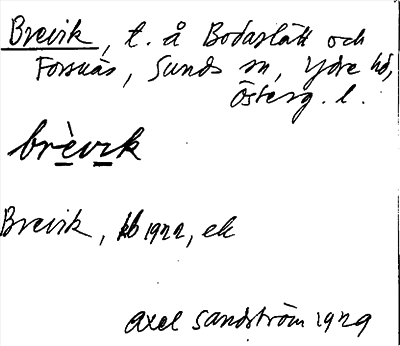 Brevik, t. å Bodaslätt och
Forsnäs, Sunds sn, Ydre hd,
Österg. l.
brèvik
Brevik, kb 1922, ek
Axel Sandström 1929